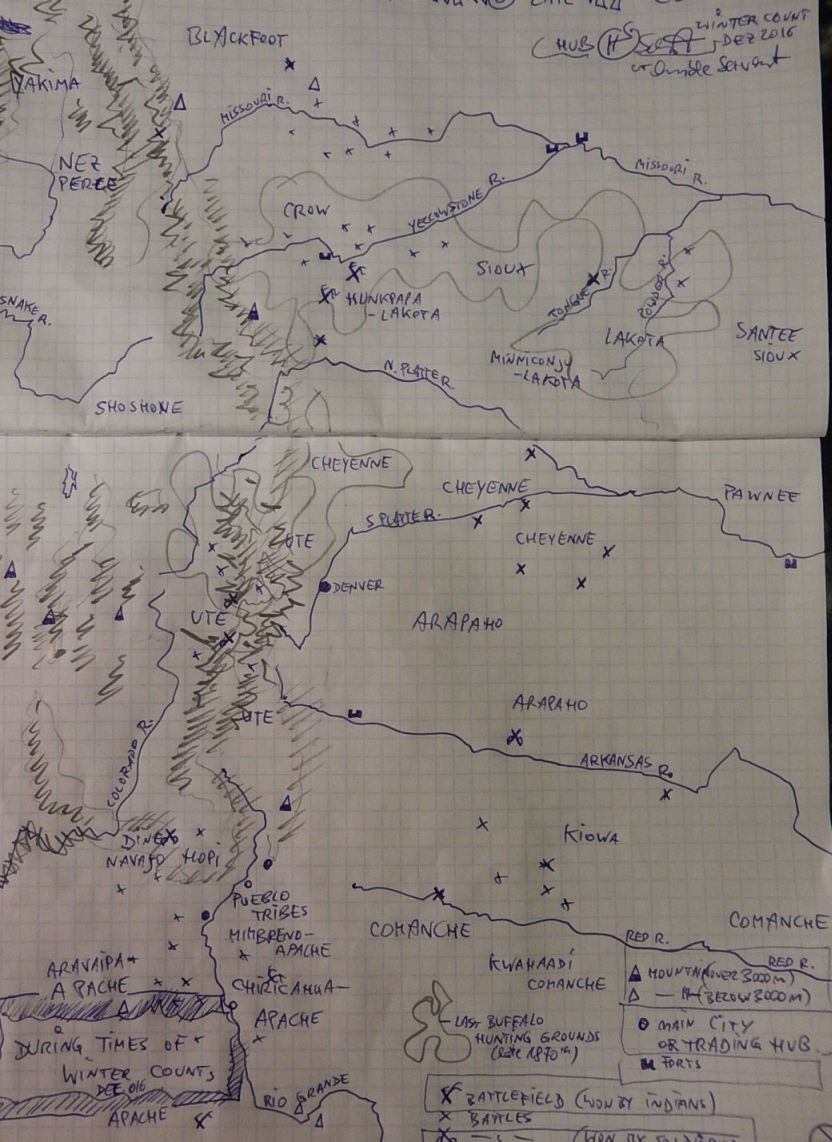 WINTER COUNT
HUB
DEZ 2016
BLACKFOOT
YAKIMA
MISSOURI R.
NEZ
PERCE
MISSOURI
R.
CROW
YELLOWSTONE R.
SIOUX
HUNKPAPA
-LAKOTA
TONGUE R.
POWDER R.
SNAKE
R.
LAKOTA
SANTEE
SIOUX
MINNICONJU
-LAKOTA
N.PLATTE R.
SHOSHONE
CHEYENNE
CHEYENNE
PAWNEE
S.PLATTE R.
UTE
CHEYENNE
DENVER
UTE
ARAPAHO
ARAPAHO
UTE
COLORADO R.
ARKANSAS R.
KIOWA
DINEH
NAVAJO
HOPI
PUEBLO
TRIBES
COMANCHE
COMANCHE
RED R.
RED R.
MIMBRENO-
APACHE
ARAVAIPA-
APACHE
KWAHAADI
COMANCHE
MOUNTAIN (OVER 3000 M)
(BELOW 3000 M)
CHIRICAHUA-
APACHE
LAST BUFFALO
HUNTING GROUNDS
MAIN CITY
OR TRADING HUB
FORTS
DURING TIMES OF
WINTER COUNTS
DEC 016
APACHE
RIO GRANDE
BATTLEFIELD (WON BY INDIANS)
BATTLES